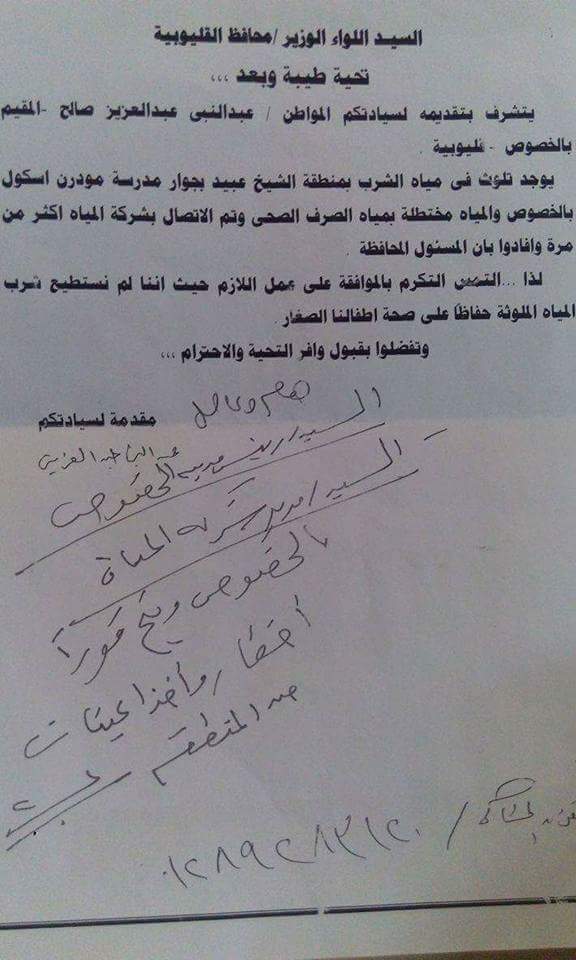 السيد اللواء الوزير /محافظ القليوبية
تحية طيبة وبعد ,,,
يتشرف بتقديمه لسيادتكم المواطن / عبدالنبى عبدالعزيز صالح -المقيم
بالخصوص - قليوبية .
يوجد تلوث فى مياه الشرب بمنطقة الشيخ عبيد بجوار مدرسة مودرن اسكول
بالخصوص والمياه مختطلة بمياه الصرف الصحى وتم الاتصال بشركة المياه اكثر من
مرة وافادوا بان المسئول المحافظة .
لذا ...التمس التكرم بالموافقة على عمل اللازم حيث اننا لم نستطيع شرب
المياه الملوثة حفاظا على صحة اطفالنا الصغار .
وتفضلوا بقبول وافر التحية والاحترام ,,,
هام وعاجل
مقدمة لسيادتكم
عبد النبى عبد العزيز
السيد / رئيس مدينة الخصوص
السيد / مدير شركة المياة
بالخصوص
فورا
وأخذ عينات
من المنطقة
٠١٢٨٩٢٨٣١٢٠